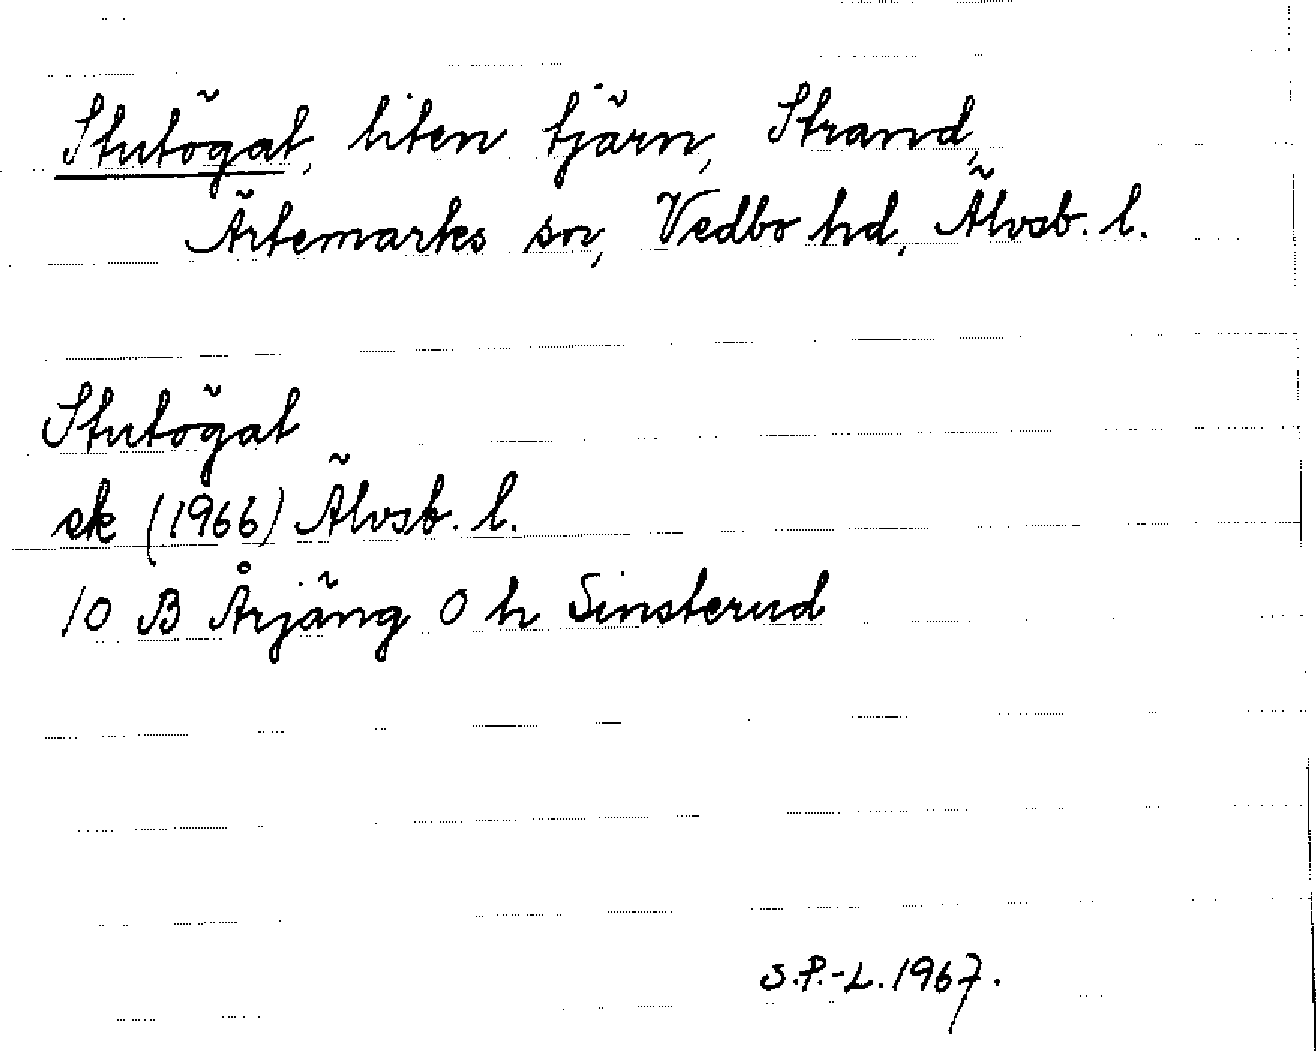 Stutögat, liten tjärn, Strand,
Ärtemarks sn, Vedbo hd, Älvsb. l.
Stutögat
ek (1966) Älvsb. l.
10 B Årjäng 0 h Sinsterud
S.P.-L. 1967.